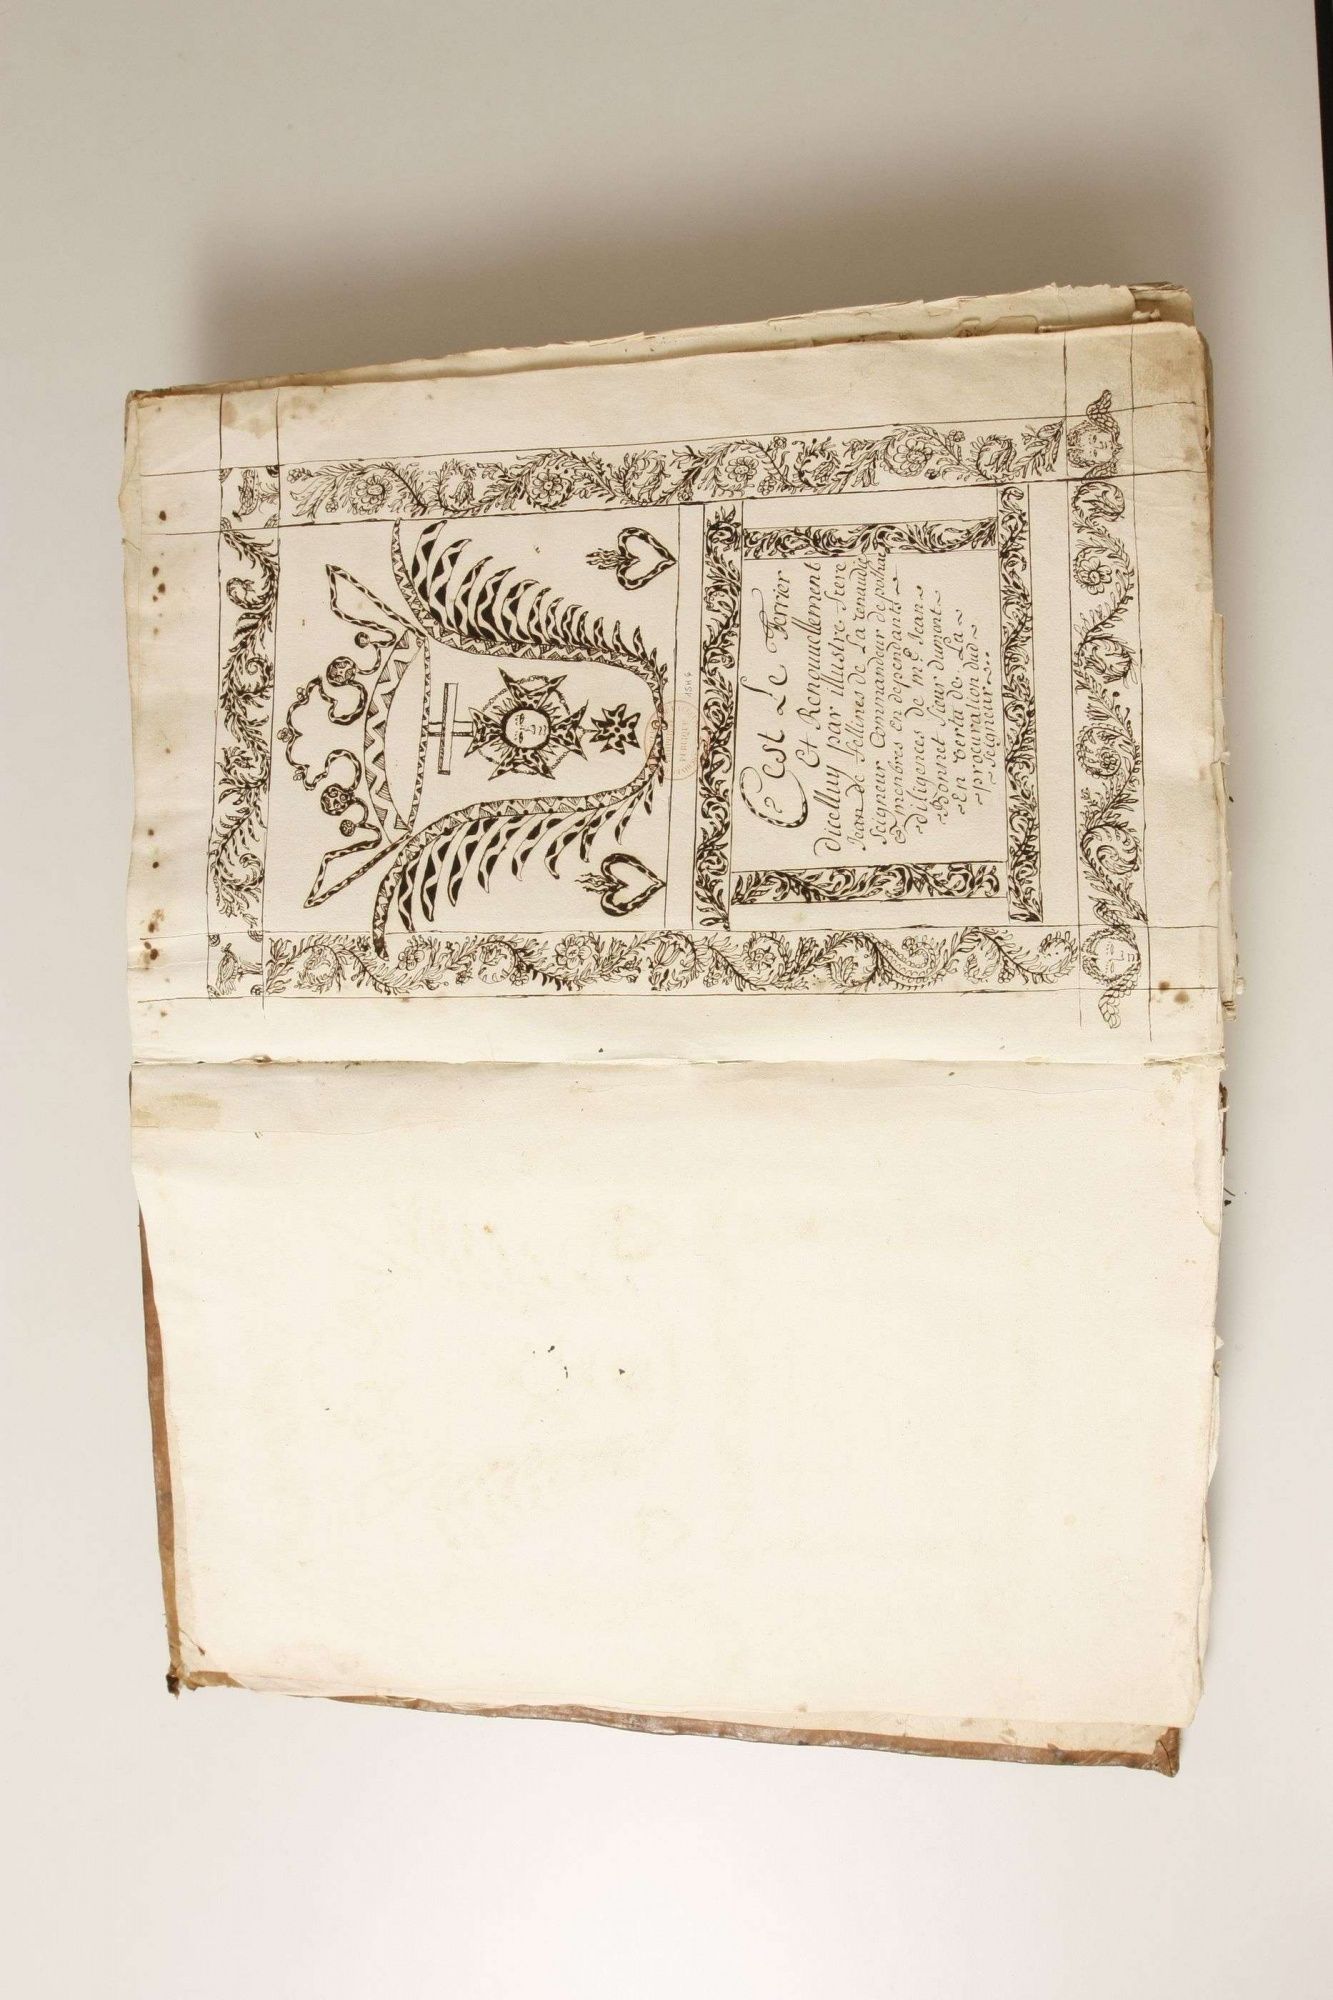 C'est Le Terrier
Et Renouuellement
Dicelluy par illustre frere
Jean de fellines de La renaudie
Seigneur Commandeur de polhac
& menbres En dependants
diligences de me Jean
Bonnet Sieur dumont
En vertu de La
procuration dud
Seigneur
15H6